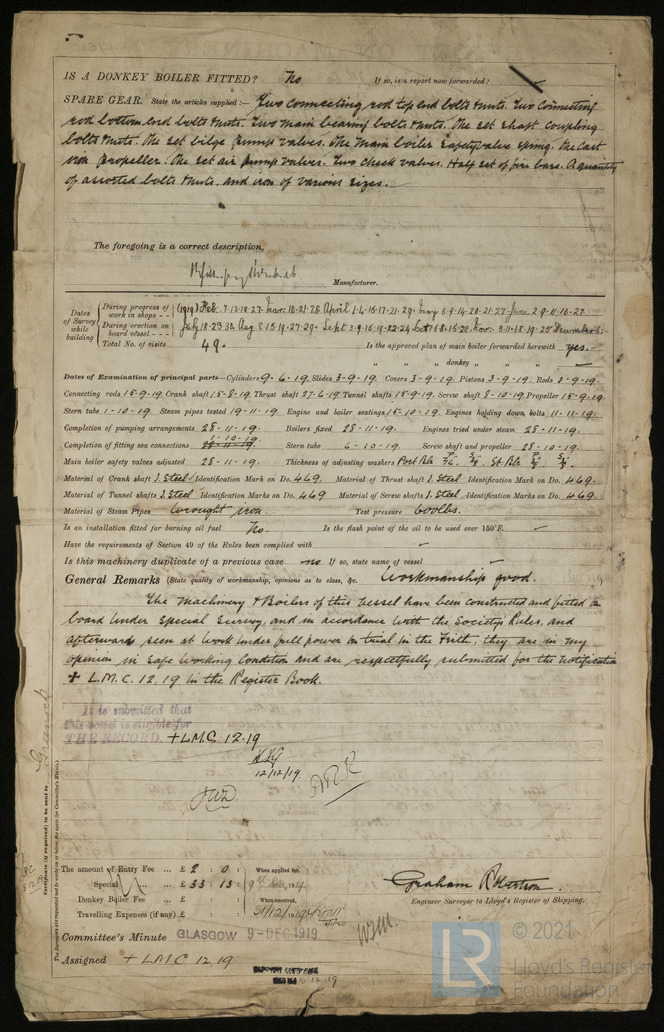 IS A DONKEY BOILER FITTED? No If so, is a report now forwarded?
SPARE GEAR. State the articles supplied :— Two connecting rod top end bolts & nuts. Two connecting
rod bottom end bolts & nuts. Two main bearing bolts & nuts. One set shaft coupling
bolts & nuts. One set bilge pump valves. One main boiler safety valve spring. One cast
iron propeller. One set air pump valves. Two check valves. Half set of fire bars. A quantity
of assorted bolts & nuts, and iron of various sizes.
The foregoing is a correct description,
Manufacturer.
Dates of Survey while building
During progress of work in shops - - (1919) Feb. 7.13.18.27. Mar. 10.21.28 April 1.4.16.17.21.29. May 6.9.14.28.21.27. June 2.9.11.16.27
During erection on board vessel - - - July 18.23.32 Aug 8.15.19.27.29. Sept 3.9.16.19.22.24 Oct 6.8.15.28. Nov. 3.11.18.19.25 December 6.
Total No. of visits 49. Is the approved plan of main boiler forwarded herewith yes.
" " " donkey " " "
Dates of Examination of principal parts—Cylinders 9-6-19. Slides 3-9-19. Covers 3-9-19. Pistons 3-9-19. Rods 3-9-19.
Connecting rods 15-9-19. Crank shaft 15-8-19. Thrust shaft 27-6-19. Tunnel shafts 15-9-19. Screw shaft 8-10-19. Propeller 15-9-19.
Stern tube 1-10-19. Steam pipes tested 19-11-19. Engine and boiler seatings 15-10-19. Engines holding down bolts 11-11-19.
Completion of pumping arrangements 28-11-19. Boilers fixed 28-11-19. Engines tried under steam 28-11-19.
Completion of fitting sea connections 1-10-19. Stern tube 6-10-19. Screw shaft and propeller 28-10-19.
Main boiler safety valves adjusted 28-11-19. Thickness of adjusting washers
Material of Crank shaft I. Steel Identification Mark on Do. 469. Material of Thrust shaft I. Steel Identification Mark on Do. 469.
Material of Tunnel shafts I. Steel Identification Marks on Do. 469 Material of Screw shafts I. Steel Identification Marks on Do. 469.
Material of Steam Pipes Wrought iron. Test pressure 600lbs.
Is an installation fitted for burning oil fuel No. Is the flash point of the oil to be used over 150°F.
Have the requirements of Section 49 of the Rules been complied with
Is this machinery duplicate of a previous case no If so, state name of vessel
General Remarks (State quality of workmanship, opinions as to class, &c. Workmanship good.)
The machinery & Boilers of this vessel have been constructed and fitted on
board under Special Survey, and in accordance with the Society's Rules, and
afterwards seen at work under full power on trial in the Firth, they are in my
opinion in safe working condition and are respectfully submitted for the notification
+ L.M.C. 12,19 in the Register Book.
It is submitted that
this vessel is eligible for
THE RECORD. + LMC 12.19
12/12/19.
Certificate (if required) to be sent to
The amount of Entry Fee ... £ 2 : 0 : When applied for,
Special ... £ 33 : 13 :
Donkey Boiler Fee ... £ : : When received,
Travelling Expenses (if any) £ : :
Graham Robertson.
Engineer Surveyor to Lloyd's Register of Shipping.
Committee's Minute GLASGOW 9-DEC 1919
Assigned + LMC 12,19
LR
© 2021
Lloyd's Register
Foundation